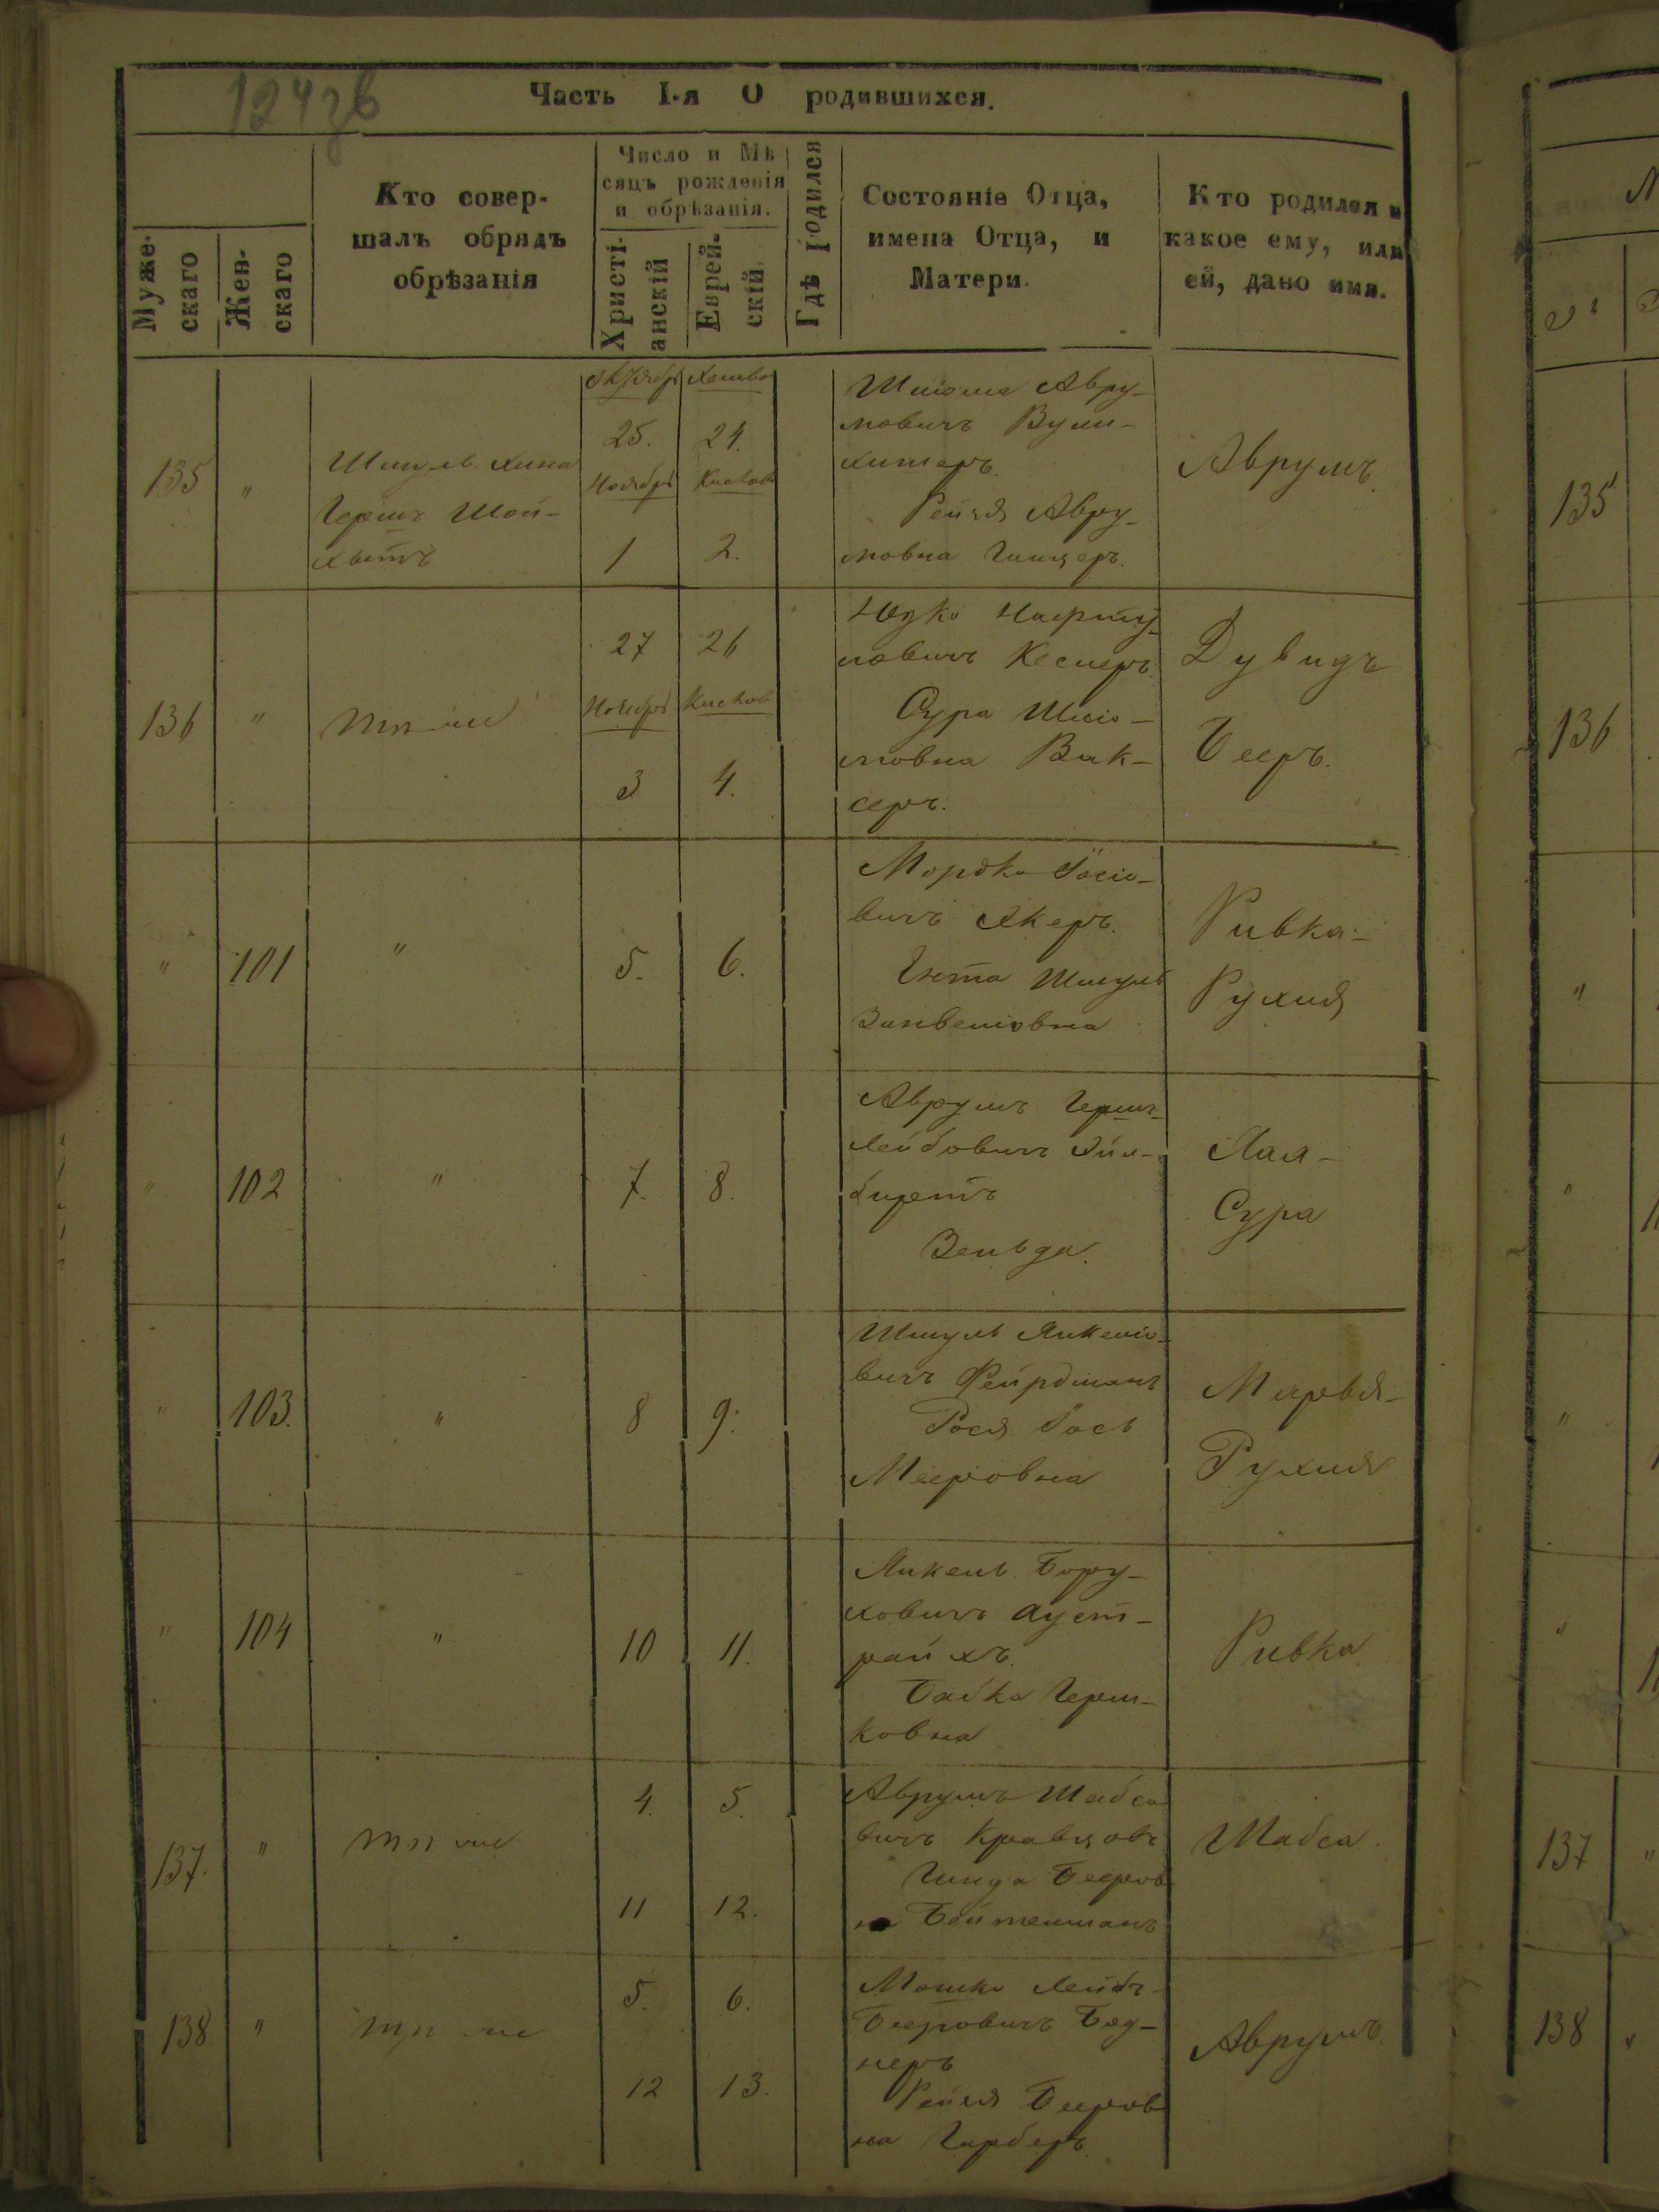 124зв
Часть I-я О родившихся.
Муже-
скаго
Жен-
скаго
Кто совер-
шалъ обрядъ
обрѣзанія
Число и Мѣ
сяцъ рожденія
и обрѣзанія.
Христі-
анскій
Еврей-
скій
Гдѣ родился
Состояніе Отца,
имена Отца, и
Матери.
Кто родился и
какое ему, или
ей, дано имя.
135 "
Шмуль
Гершъ Шой-
хытъ
Октябрь Хешва
25. 24.
Ноябрь Кислов
1 2.
Шлома Авру-
мовичъ
Рейзя Авру-
мовна
Аврумъ.
136 "
тп же
27 26
Ноябрь Кислов
3 4.
Юдко Нафту
ловичъ Кеслеръ.
Сура Шло-
мовна Вак-
серъ.
Дувидъ
Бееръ.
" 101 "
5. 6.
Мордко Іосіо-
вичъ Акеръ.
Гнта Шмуль
Занвеліовна
Ривка-
Рухля
" 102 "
7. 8.
Аврумъ Гершъ-
Лейбовичъ
Зельда.
Лая-
Сура
" 103. "
8 9.
Шмуль Янкеліо-
вичъ Фейрдманъ
Рося Іось
Мееровна
Марвя-
Рухля
" 104 "
10 11.
Янкель Бору-
ховичъ Ауст-
райхъ.
Бабка Герш-
ковна
Ривка
137. "
тп же
4. 5.
11 12.
Аврумъ Шабсо
вичъ Кравцовъ
Гинда Бееров
на Бейтельманъ
Шабса.
138 "
тп же
5. 6.
12 13.
Мошко Лейбъ-
Бееровичъ Бод-
неръ
Рейзя Бееров
на Гарберъ.
Аврумъ.
135
136
"
"
"
"
137 "
138 "